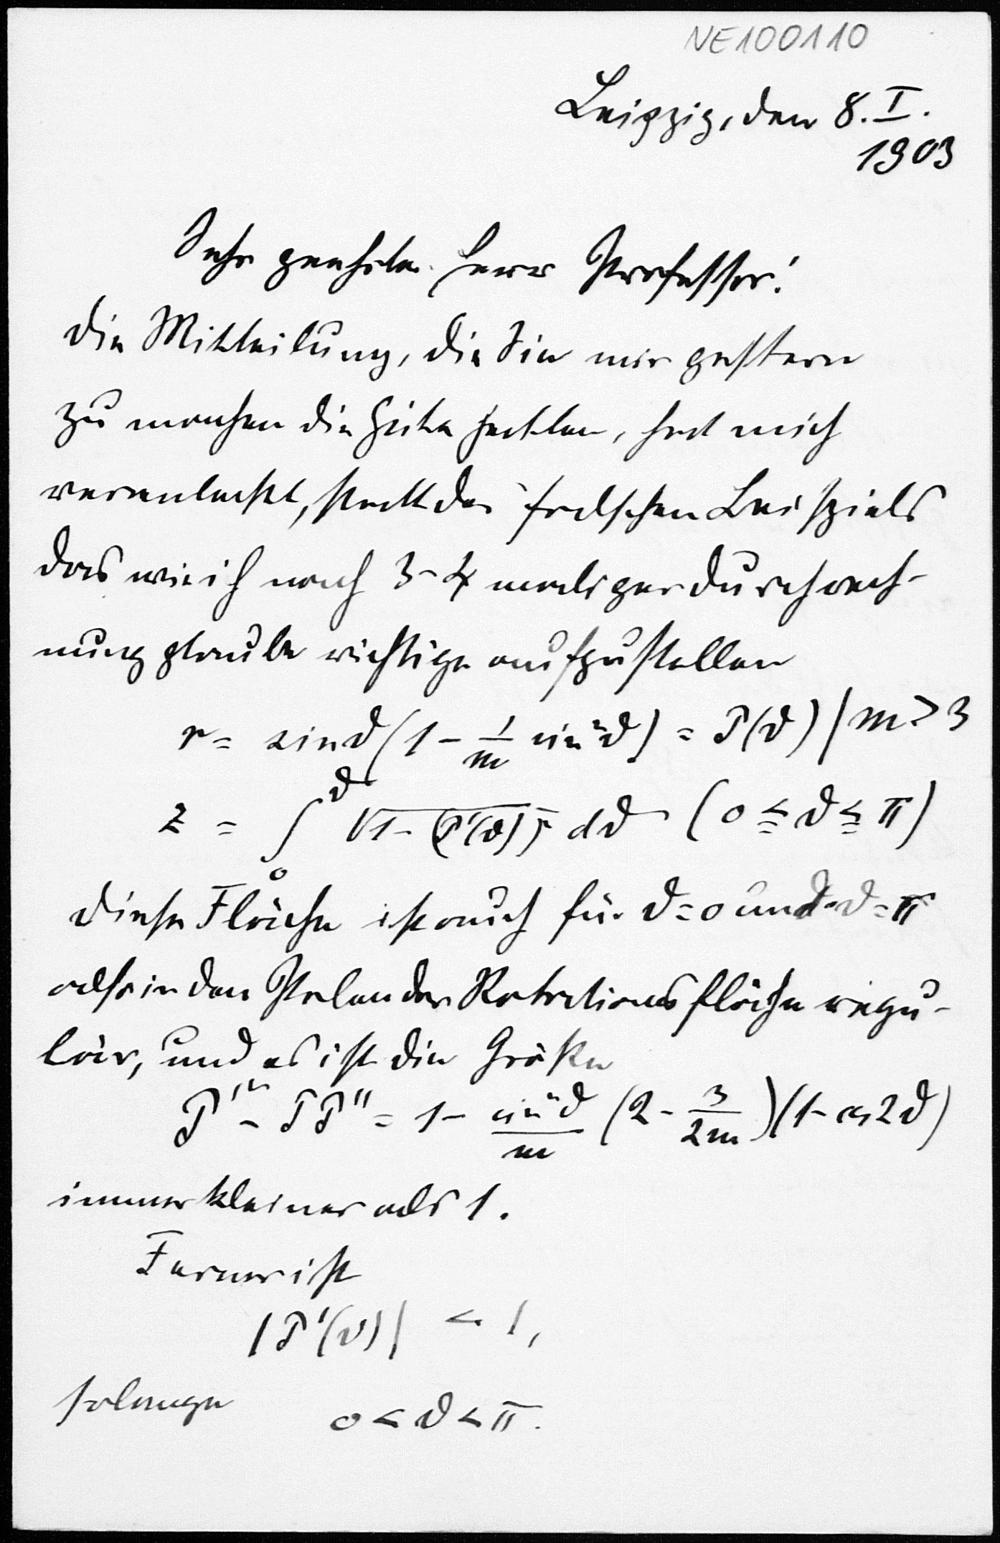 NE100110
Leipzig, den 8. I.
1903
Sehr geehrter Herr Professor!
Die Mitteilung, die Sie mir gestern
zu machen die Güte hatten, hat mich
veranlaßt, statt des falschen Beispiels
das wie ich nach 3-4 maliger Durchrech-
nung glaube richtige aufzustellen
r = sin ϑ (1 - 1/m sin²ϑ) = P(ϑ) / m > 3
z = ∫₀^ϑ √(1 - (P'(ϑ))²) dϑ (0 ≦ ϑ ≦ π)
Diese Fläche ist auch für ϑ = 0 und ϑ = π
also in den Polen der Rotationsfläche regu-
lär, und es ist die Größe
P'² - PP'' = 1 - sin²ϑ/m (2 - 3/2m)(1 - cos 2ϑ)
immer kleiner als 1.
Ferner ist
|P'(ϑ)| < 1,
solange 0 < ϑ < π.